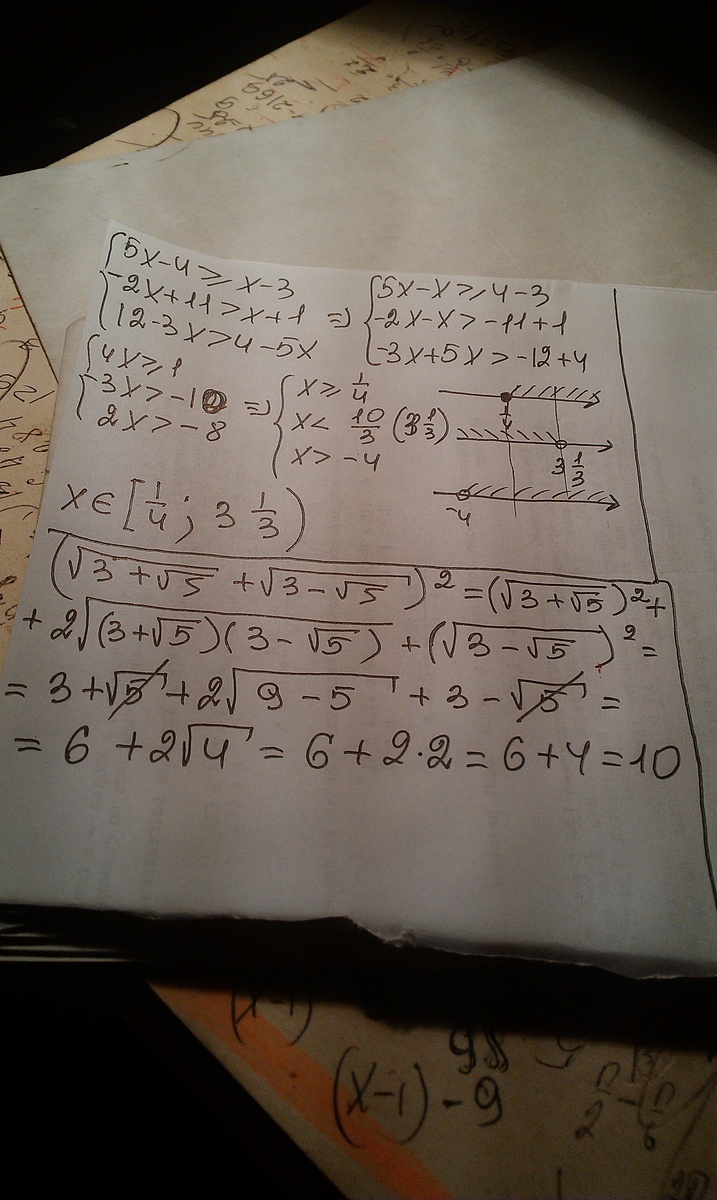 {5x-4⩾x-3
{-2x+11>x+1 => {5x-x⩾4-3
{12-3x>4-5x {-2x-x>-11+1
{-3x+5x>-12+4
{4x⩾1
{3x>-10 => {x⩾1/4
{2x>-8 {x<10/3 (3 1/3)
{x>-4
1/4
3 1/3
-4
x∈[1/4; 3 1/3)
(√(3+√5) + √(3-√5))² = (√(3+√5))² +
+ 2√((3+√5)(3-√5)) + (√(3-√5))² =
= 3+√5 + 2√(9-5) + 3-√5 =
= 6 + 2√4 = 6+2·2 = 6+4 = 10
(x-1)
(x-1)-9